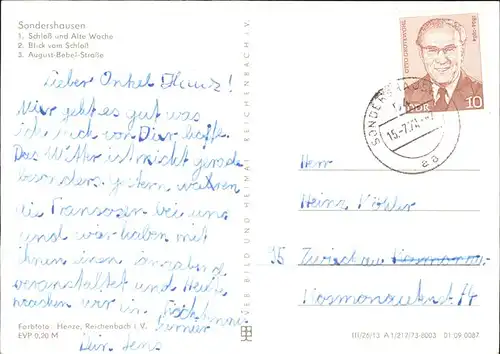 Sondershausen
1. Schloß und Alte Wache
2. Blick vom Schloß
3. August-Bebel-Straße
Lieber Onkel Heinz!
Mir geht es gut was
ich auch von Dir hoffe.
Das Wetter ist nicht gerade
besonders. gestern wahren
die Franzosen bei uns
und wir haben mit
ihnen einen
veranstaltet und Heute
machen wir in
immer
Dein Jens
Farbfoto Henze, Reichenbach i. V.
EVP 0,20 M
VEB BILD UND HEIMAT REICHENBACH i. V.
OTTO GROTEWOHL
1894-1964
DDR
10
SONDERSHAUSEN
aa
Herr
Heinz Köhler
95 Zwickau
Kosmonautenstr. 14
III/26/13 A 1/217/73-8003 01 09 0087